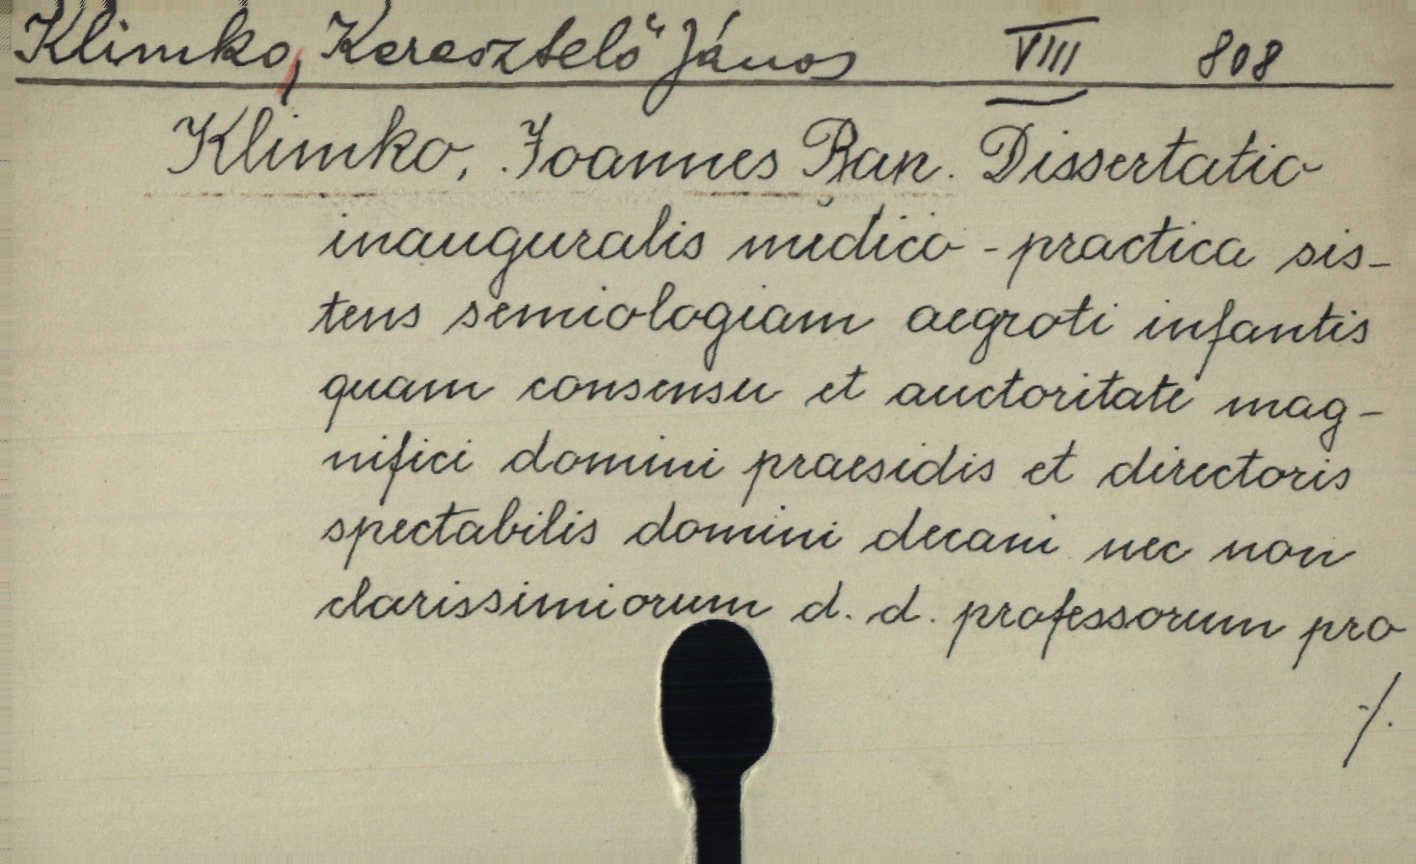 Klimko, Keresztelő János VIII 808
Klimko, Joannes Bap. Dissertatio
inauguralis medico-practica sis-
tens semiologiam aegroti infantis
quam consensu et auctoritate mag-
nifici domini praesidis et directoris
spectabilis domini decani nec non
clarissimiorum d. d. professorum pro
./.